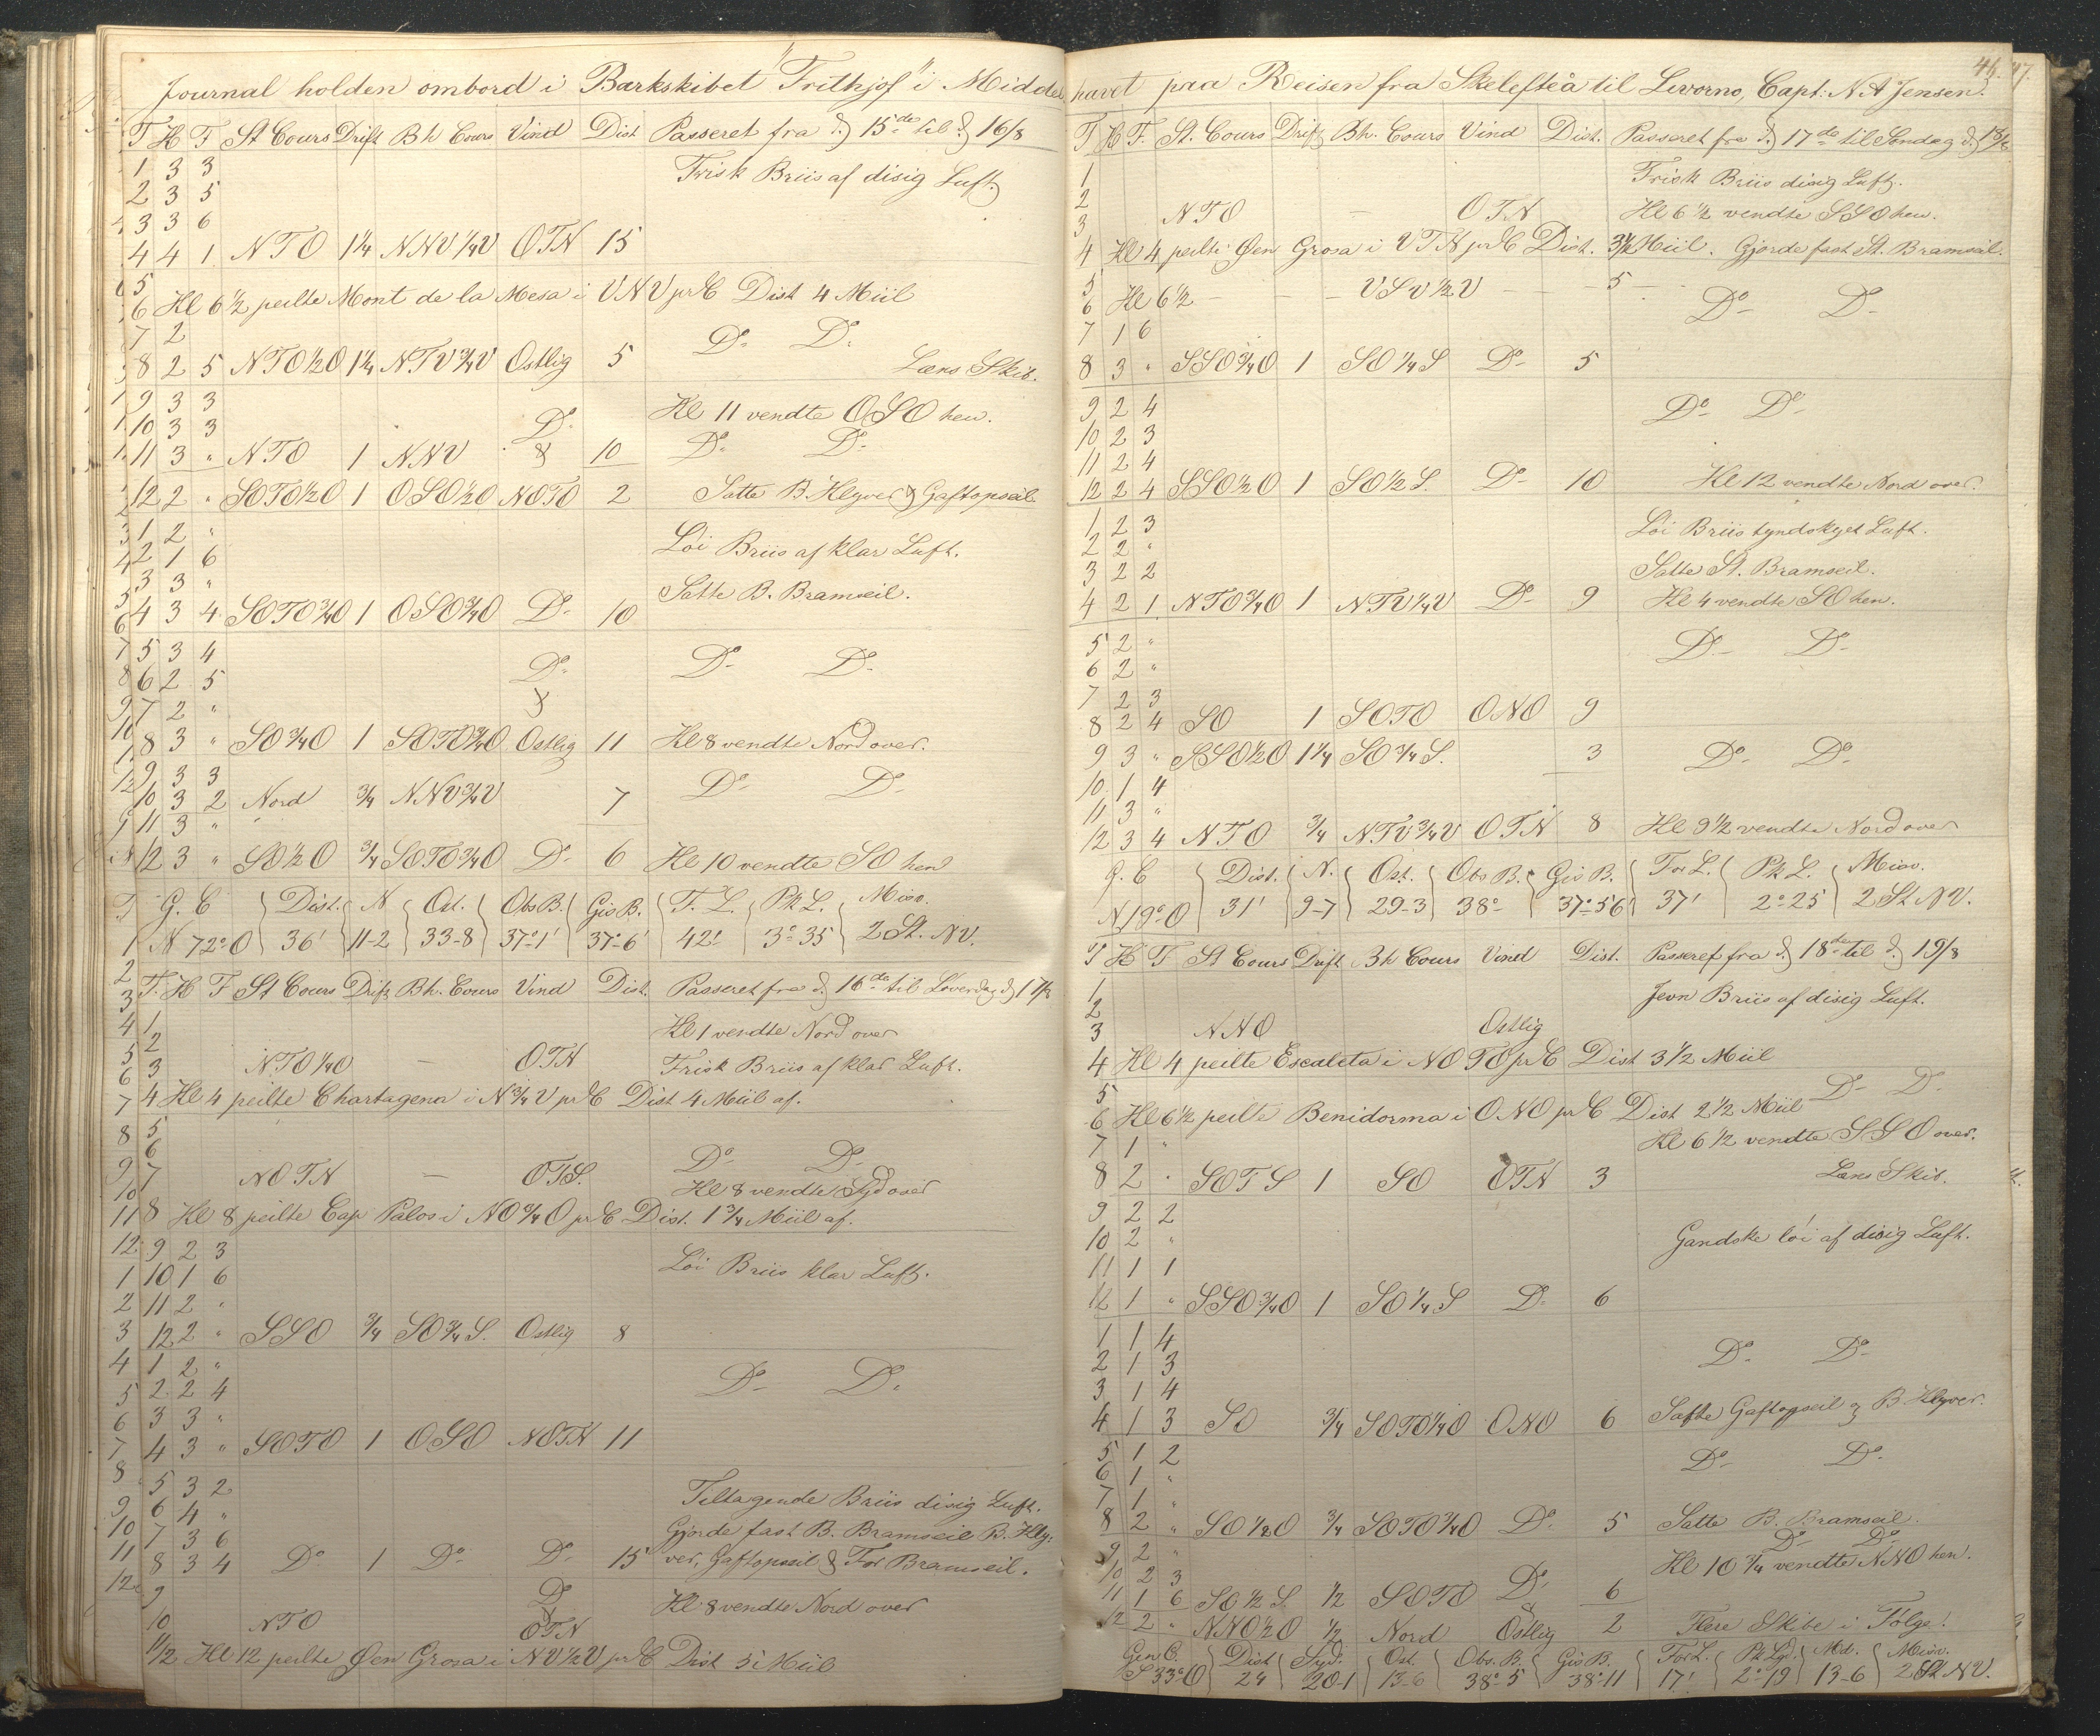 Journal holden ombord i Barkskibet "Frithjof" i Middel
T H F St Cours Drift Bh Cours Vind Dist Passeret fra d 15de til d 16/8
1 3 3 Frisk Briis af disig Luft
2 3 5
3 3 6
4 4 1 NTO 1¼ NNV¼V OTN 15
5
6 Kl 6½ peilte Mont de la Mesa i VNV pr C Dist 4 Miil
7 2 Do Do
8 2 5 NTO½O 1¼ NTV¾V Ostlig 5 Læns Skib.
9 3 3 Kl 11 vendte OSO hen.
10 3 3 Do
11 3 " NTO 1 NNV & 10 Do Do
12 2 " SOTO½O 1 OSO½O NOTO 2 Satte B. Klyver & Gaftopseil
1 2 "
2 1 6 Löi Briis af klar Luft.
3 3 "
4 3 4 SOTO¾O 1 OSO¾O Do 10 Satte B. Bramseil.
5 3 4 Do Do
6 2 5 Do
7 2 " &
8 3 " SO¾O 1 SOTO¾O Ostlig 11 Kl 8 vendte Nord over.
9 3 3 Do Do
10 3 2 Nord ¾ NNV¾V 7
11 3 "
12 3 " SO½O ¾ SOTO¾O Do 6 Kl 10 vendte SO hen
G. C Dist. N Ost. Obs B. Gis B. F. L. Pk L. Misv.
N 72°O 36' 11-2 33-8 37°1' 37°6' 42' 3°35 2 St. NV.
T. H F St Cours Drift Bh. Cours Vind Dist. Passeret fra d 16de til Löverdag d 17/8
1 Kl 1 vendte Nord over
2
3 NTO¼O — OTN Frisk Briis af klar Luft.
4 Kl 4 peilte Chartagena i N¾V pr C Dist 4 Miil af.
5
6 Do Do
7 NOTN — OTS. Kl 8 vendte Syd over
8 Kl 8 peilte Cap Palos i NO¾O pr C Dist. 1¾ Miil af.
9 2 3 Löi Briis klar Luft.
10 1 6
11 2 "
12 2 " SSO ¾ SO¾S. Ostlig 8
1 2 " Do Do
2 2 4
3 3 "
4 3 " SOTO 1 OSO NOTN 11
5 3 2 Tiltagende Briis disig Luft.
6 4 " Gjorde fast B. Bramseil B. Kly-
7 3 6
8 3 4 Do 1 Do Do 15 ver, Gaftopseil & For Bramseil.
9 Do Kl. 8 vendte Nord over
10 NTO & OTN
11/12 Kl 12 peilte Öen Grosa i NV½V pr C Dist 3 Miil
46. 47.
havet paa Reisen fra Skelefteå til Livorno, Capt: N A Jensen.
T H F. St. Cours Drift Bh. Cours Vind Dist. Passeret fra d 17de til Söndag d 18/8
1 Frisk Briis disig Luft.
2
3 NTO — OTN Kl 6½ vendte SSO hen.
4 Kl 4 peilte Öen Grosa i VTN pr C Dist. 3½ Miil. Gjorde fast St. Bramseil.
5
6 Kl 6½ — — — VSV½V — — — 5 — Do Do
7 1 6
8 3 " SSO¾O 1 SO¼S Do 5
9 2 4 Do Do
10 2 3
11 2 4
12 2 4 SSO½O 1 SO½S. Do 10 Kl 12 vendte Nord over.
1 2 3 Löi Briis tyndskyet Luft.
2 2 "
3 2 2 Satte St. Bramseil.
4 2 1 NTO¾O 1 NTV¼V Do 9 Kl 4 vendte SO hen.
5 2 " Do Do
6 2 "
7 2 3
8 2 4 SO 1 SOTO ONO 9
9 3 " SSO½O 1¼ SO¾S. 3 Do Do
10 1 4
11 3 "
12 3 4 NTO ¾ NTV¾V OTN 8 Kl 9½ vendte Nord over
G. C Dist. N. Ost. Obs B. Gis B. For L. Pk L. Misv.
N 19°O 31' 9-7 29-3 38° 37°56' 37' 2°25 2 St NV.
T H F St Cours Drift Bh Cours Vind Dist. Passeret fra d 18de til d 19/8
1 Jevn Briis af disig Luft.
2
3 NNO Ostlig
4 Kl 4 peilte Escaleta i NOTO pr C Dist 3½ Miil
5 Do Do
6 Kl 6½ peilte Benidorma i ONO pr C Dist 2½ Miil
7 1 " Kl 6½ vendte SSO over.
8 2 " SOTS 1 SO OTN 3 Læns Skib.
9 2 2
10 2 " Gandske löi af disig Luft.
11 1 1
12 1 " SSO¾O 1 SO¼S Do 6
1 1 4
2 1 3 Do Do
3 1 4
4 1 3 SO ¾ SOTO¼O ONO 6 Satte Gaftopseil og B. Klyver.
5 1 2 Do Do
6 1 "
7 1 "
8 2 " SO½O ¾ SOTO¼O Do 5 Satte B. Bramseil.
9 2 " Do Do
10 2 3 Do Kl 10¾ vendte NNO hen.
11 1 6 SO½S ½ SOTO & 6
12 2 " NNO½O ½ Nord Ostlig 2 Flere Skibe i Fölge!
Gen C. Dist Syd. Ost. Obs. B. Gis B. For L. Pk Lgd. Md. Misv.
S 33°O 24 20-1 13-6 38°5 38°11 17' 2°19 13-6 2 St NV.